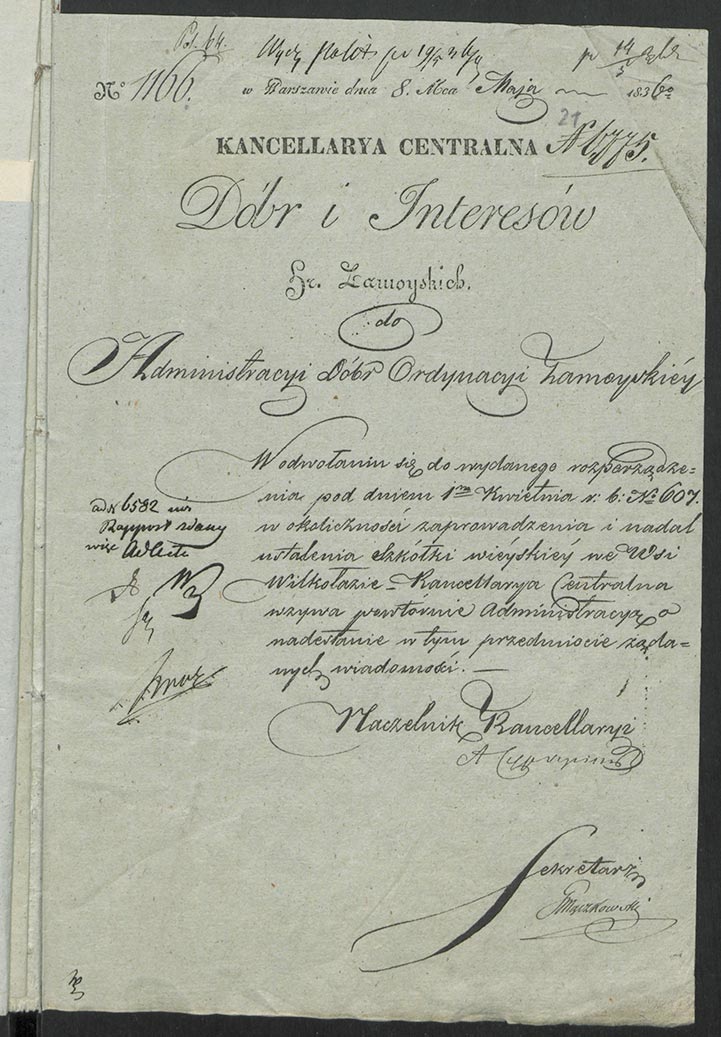 Pol. 64.
N° 1166. w Warszawie dnia 8. Mca Maja 1836go
21
KANCELLARYA CENTRALNA N 6775.
Dóbr i Interesów
Hr. Zamoyskich.
do
Administracyi Dóbr Ordynacyi Zamoyskiéy
W odwołaniu się do wydanego rozporządze-
nia pod dniem 1ym Kwietnia r: b: No 607.
w okoliczności zaprowadzenia i nadal
ustalenia Szkółki wieyskiéy we Wsi
Wilkołazie – Kancellarya Centralna
wzywa powtórnie Administracyą o
nadesłanie w tym przedmiocie żąda-
nych wiadomości. —
ad N 6582
Rapport zdany
więc ad acta
Naczelnik Kancellaryi
Sekretarz